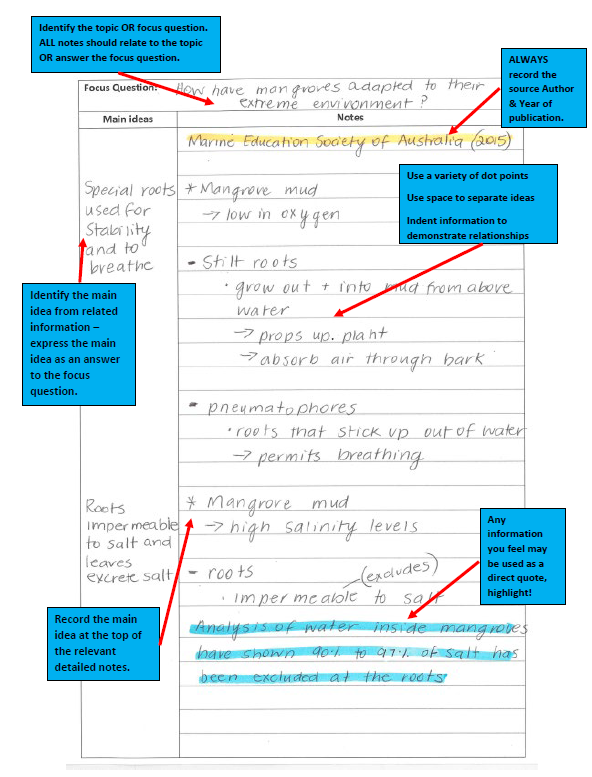 Identify the topic OR focus question.
ALL notes should relate to the topic
OR answer the focus question.
ALWAYS
record the
source Author
& Year of
publication.
Focus Question: How have mangroves adapted to their
extreme environment?
Main ideas
Notes
Marine Education Society of Australia (2015)
Use a variety of dot points
Use space to separate ideas
Indent information to
demonstrate relationships
Special roots
used for
Stability
and to
breathe
* Mangrove mud
→ low in oxygen
- Stilt roots
· grow out + into mud from above
water
→ props up. plant
→ absorb air through bark
Identify the main
idea from related
information –
express the main
idea as an answer
to the focus
question.
- pneumatophores
· roots that stick up out of water
→ permits breathing
Roots
impermeable
to salt and
leaves
excrete salt
* Mangrove mud
→ high salinity levels
- roots
(excludes)
· impermeable to salt
Any
information
you feel may
be used as a
direct quote,
highlight!
Record the main
idea at the top of
the relevant
detailed notes.
Analysis of water inside mangroves
have shown 90% to 97% of salt has
been excluded at the roots